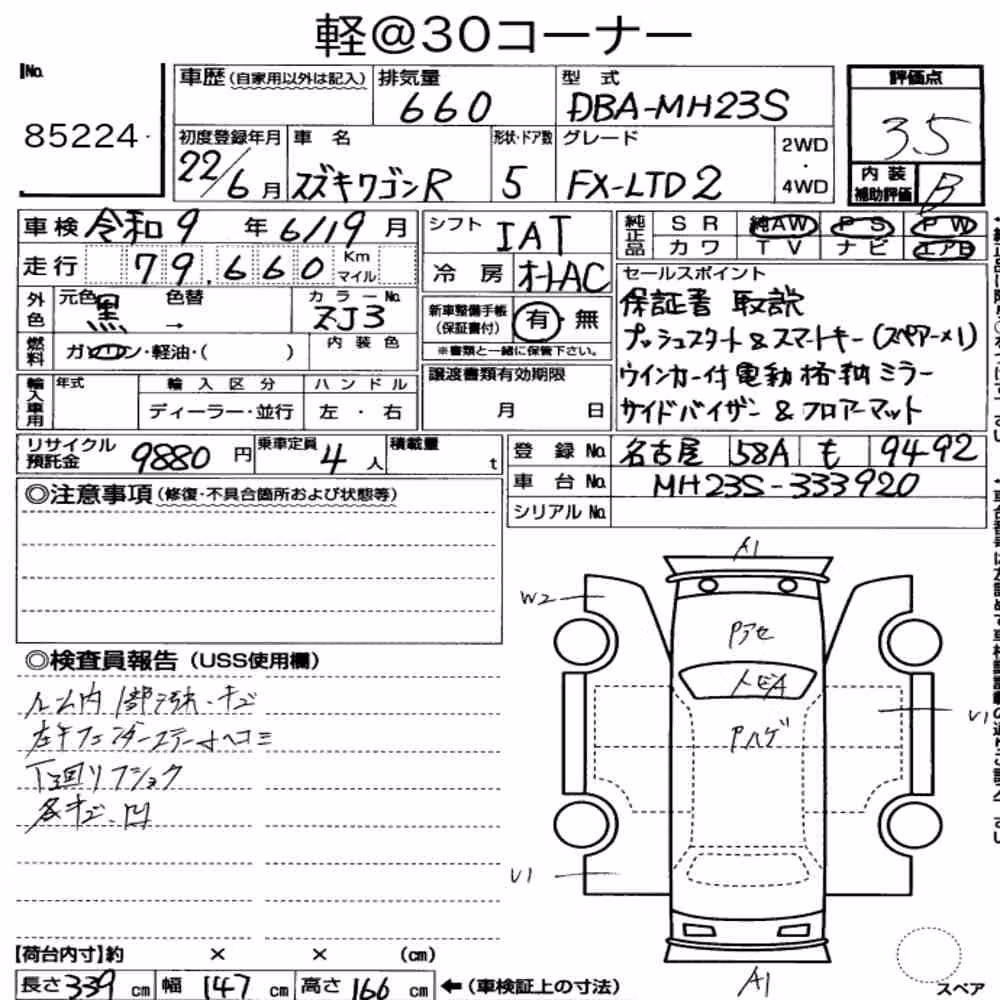 軽@30コーナー
No. 85224
車歴(自家用以外は記入) 排気量 660 型式 DBA-MH23S 評価点 3.5
初度登録年月 22/6月 車名 スズキワゴンR 形状・ドア数 5 グレード FX-LTD2 2WD・4WD
内装補助評価 B
車検 令和9年6/19月 シフト IAT 純正品 SR 純AW PS PW
カワ TV ナビ エアB
走行 79,660 Km マイル 冷房 オートAC
セールスポイント
保証書 取説
プッシュスタート&スマートキー(スペアー×1)
ウインカー付電動格納ミラー
サイドバイザー&フロアーマット
外色 元色 黒 → 色替 カラーNo. ZJ3
新車整備手帳(保証書付) 有・無
※書類と一緒に保管下さい。
燃料 ガソリン・軽油・( ) 内装色
譲渡書類有効期限 月 日
輸入車用 年式 輸入区分 ハンドル
ディーラー・並行 左・右
リサイクル預託金 9880円 乗車定員 4人 積載量 t
登録No. 名古屋 58A も 9492
車台No. MH23S-333920
シリアルNo.
◎注意事項(修復・不具合箇所および状態等)
◎検査員報告(USS使用欄)
ルーム内1部汚れ、キズ
左Fフェンダーステー小ヘコミ
下回リフショク
各キズ、凹
A1
W2
Pアセ
トビA
Aハゲ
U1
U1
A1
スペア
【荷台内寸】約 × × (cm)
長さ339cm 幅147cm 高さ166cm ←(車検証上の寸法)